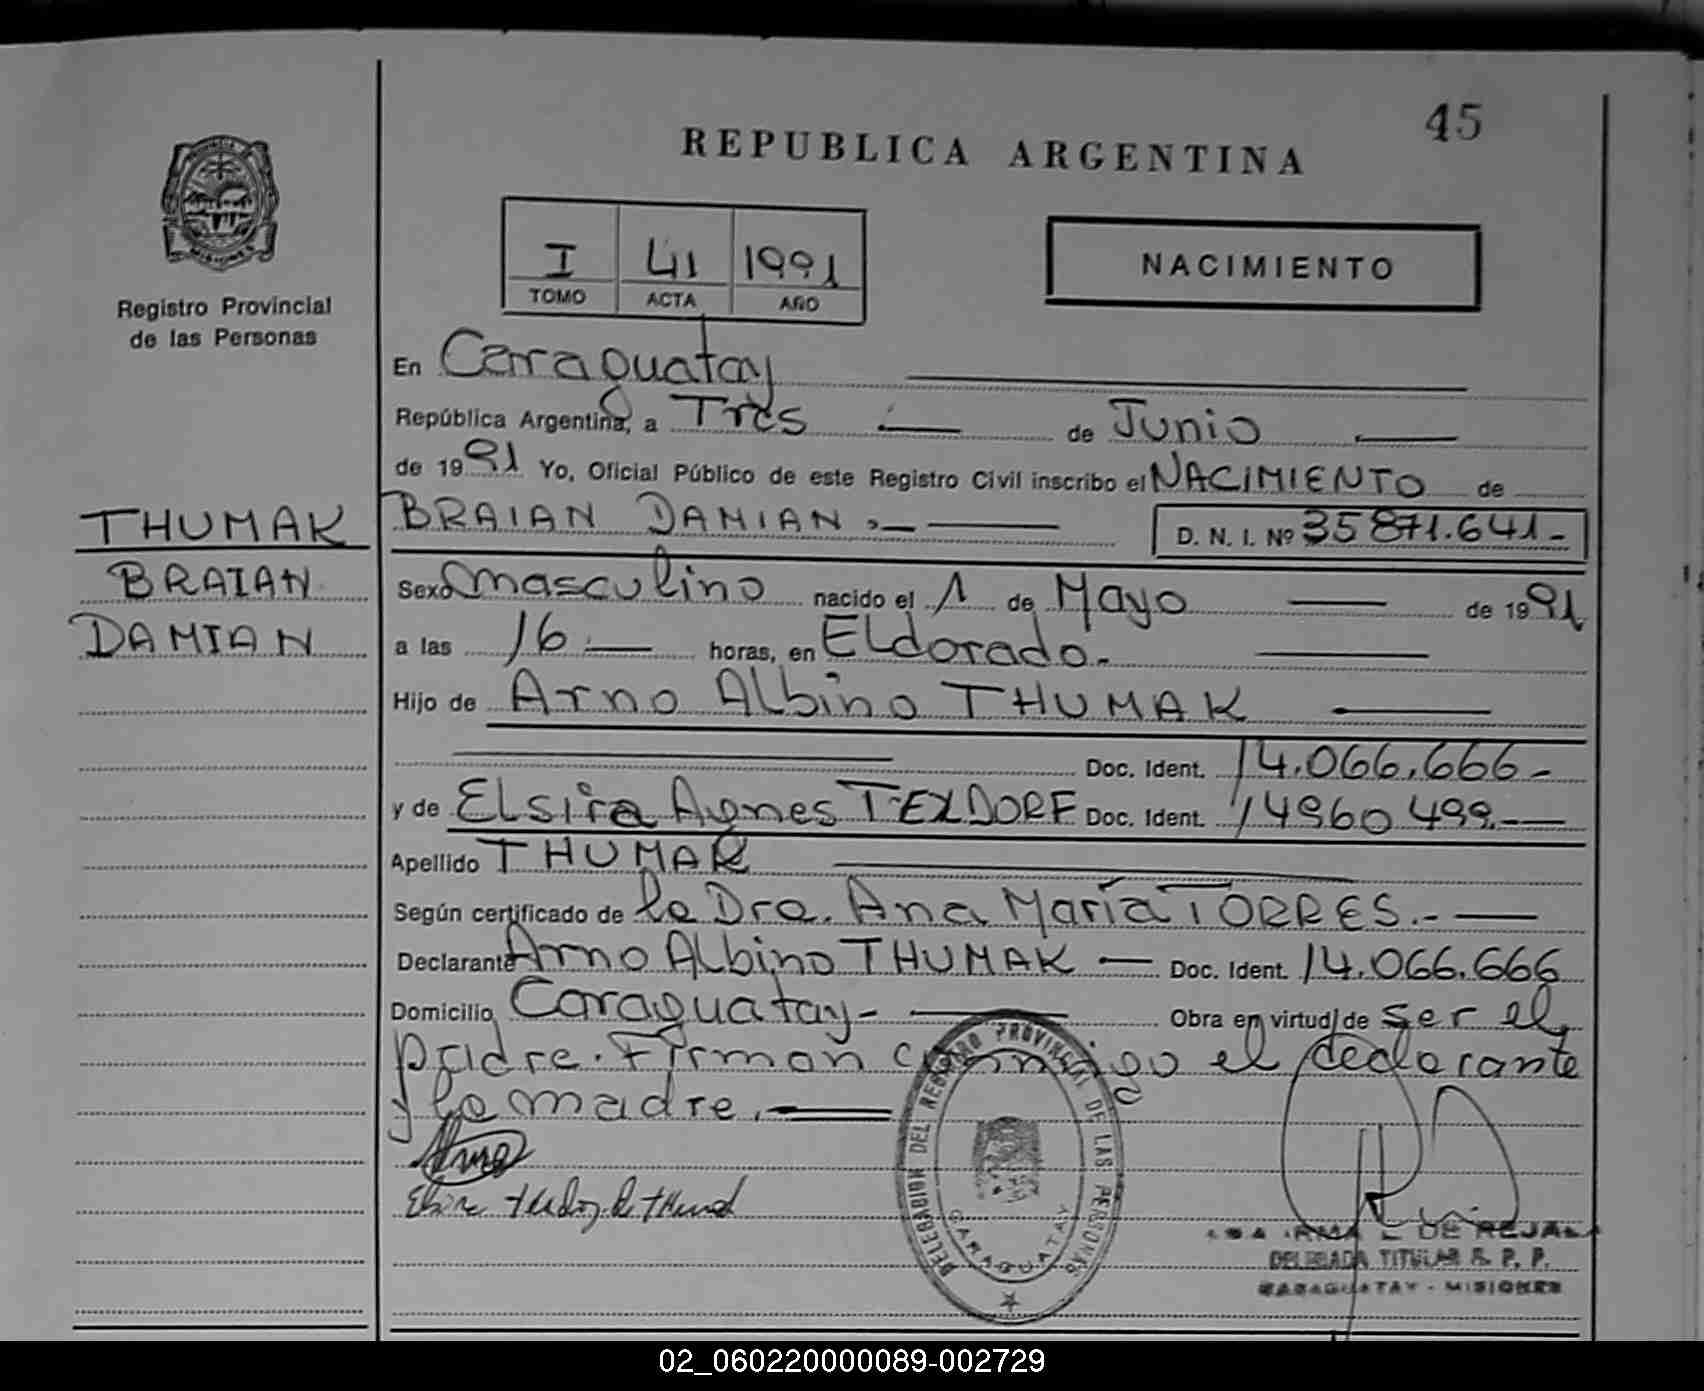 45
REPUBLICA ARGENTINA
I 41 1991
TOMO ACTA AÑO
NACIMIENTO
PROVINCIA
MISIONES
Registro Provincial
de las Personas
THUMAK
BRAIAN
DAMIAN
En Caraguatay
República Argentina, a Tres de Junio
de 1991 Yo, Oficial Público de este Registro Civil inscribo el NACIMIENTO de
BRAIAN DAMIAN.- D. N. I. Nº 35871.641-
Sexo masculino nacido el 1 de Mayo de 1991
a las 16.- horas, en ELdorado.-
Hijo de Arno Albino THUMAK
Doc. Ident. 14.066.666-
y de Elsira Agnes TEXDORF Doc. Ident. 14960499.-
Apellido THUMAK
Según certificado de la Dra. Ana María TORRES.-
Declarante Arno ALbino THUMAK — Doc. Ident. 14.066.666
Domicilio Caraguatay- Obra en virtud de ser el
padre. Firman conmigo el declarante
y la madre.
DELEGACION DEL REGISTRO PROVINCIAL DE LAS PERSONAS
CARAGUATAY
DE REJALA
DELEGADA TITULAR R. P. P.
CARAGUATAY - MISIONES
02_060220000089-002729